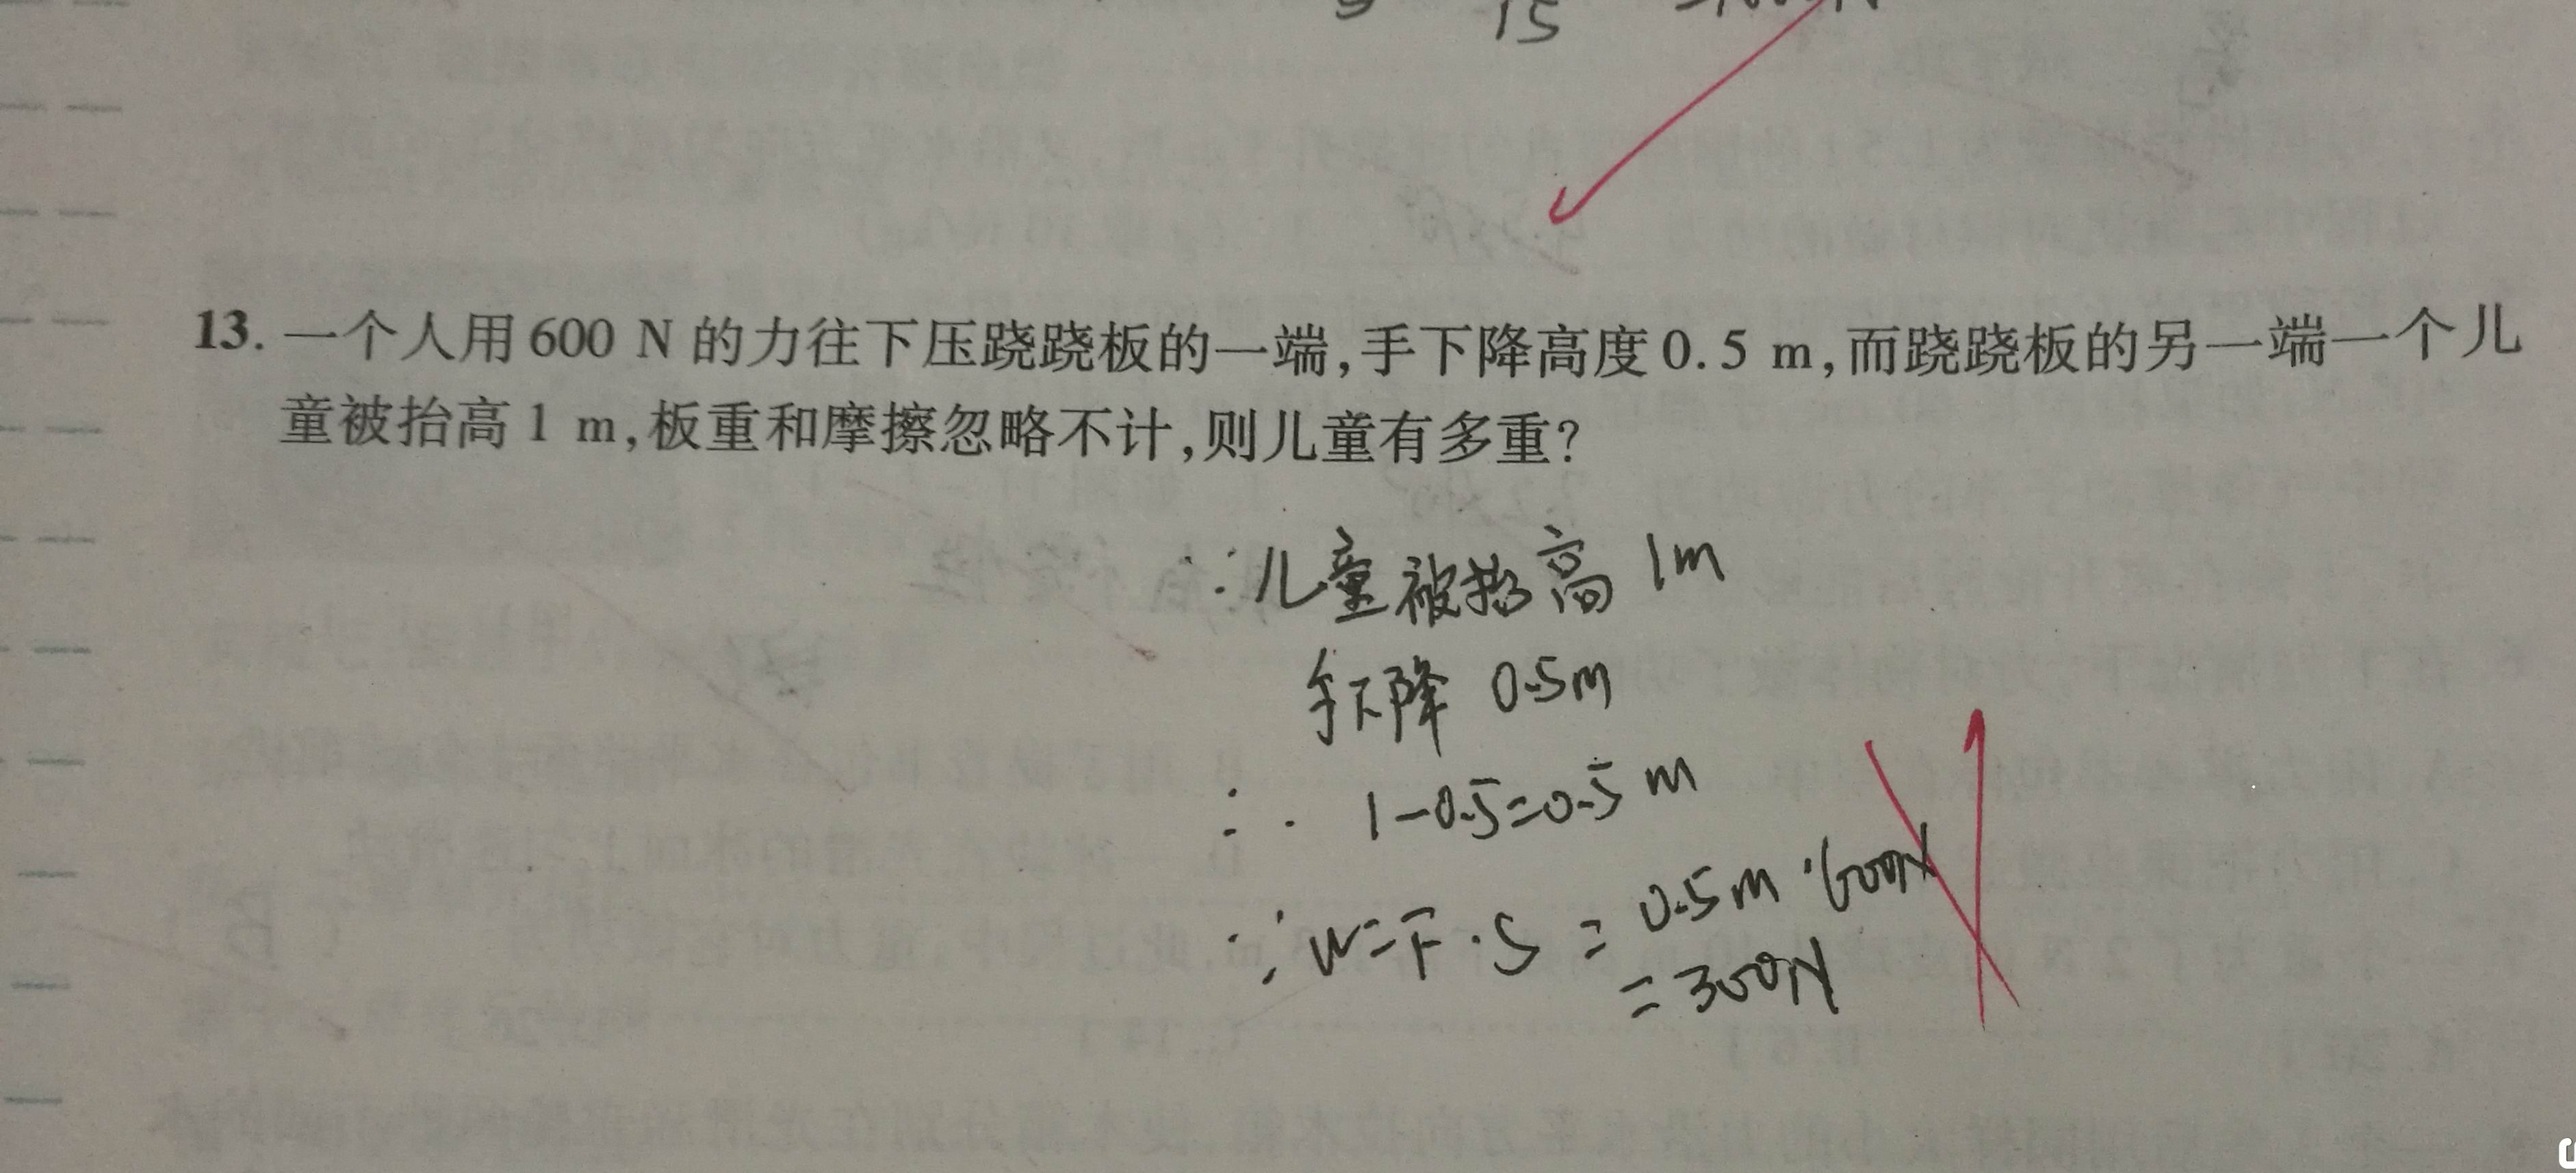 15
13. 一个人用 600 N 的力往下压跷跷板的一端,手下降高度 0.5 m,而跷跷板的另一端一个儿
童被抬高 1 m,板重和摩擦忽略不计,则儿童有多重?
∵儿童被抬高 1m
手下降 0.5m
∴ 1-0.5=0.5m
∵W=F·S=0.5m·600N
=300N